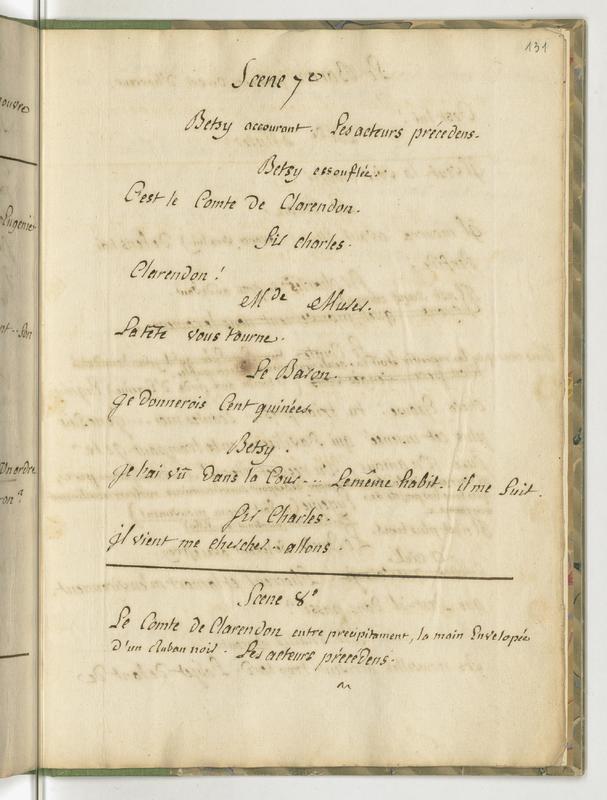 131
Scene 7e
Betsy accourant. Les acteurs précedens.
Betsy essouflée.
C'est le Comte de Clarendon.
Sir charles.
Clarendon !
Mde Muser.
La tête vous tourne.
Le Baron.
je donnerois Cent guinées.
Betsy.
je l'ai vû dans la Cour... Le même habit. il me Suit.
Sir Charles.
jl vient me chercher.. allons.
Scene 8e
Le Comte de Clarendon entre precipitament, la main Envelopée
d'un Ruban noir. Les acteurs précédens.
ouvre
Eugenie
nt.. Son
Un ordre
ron?